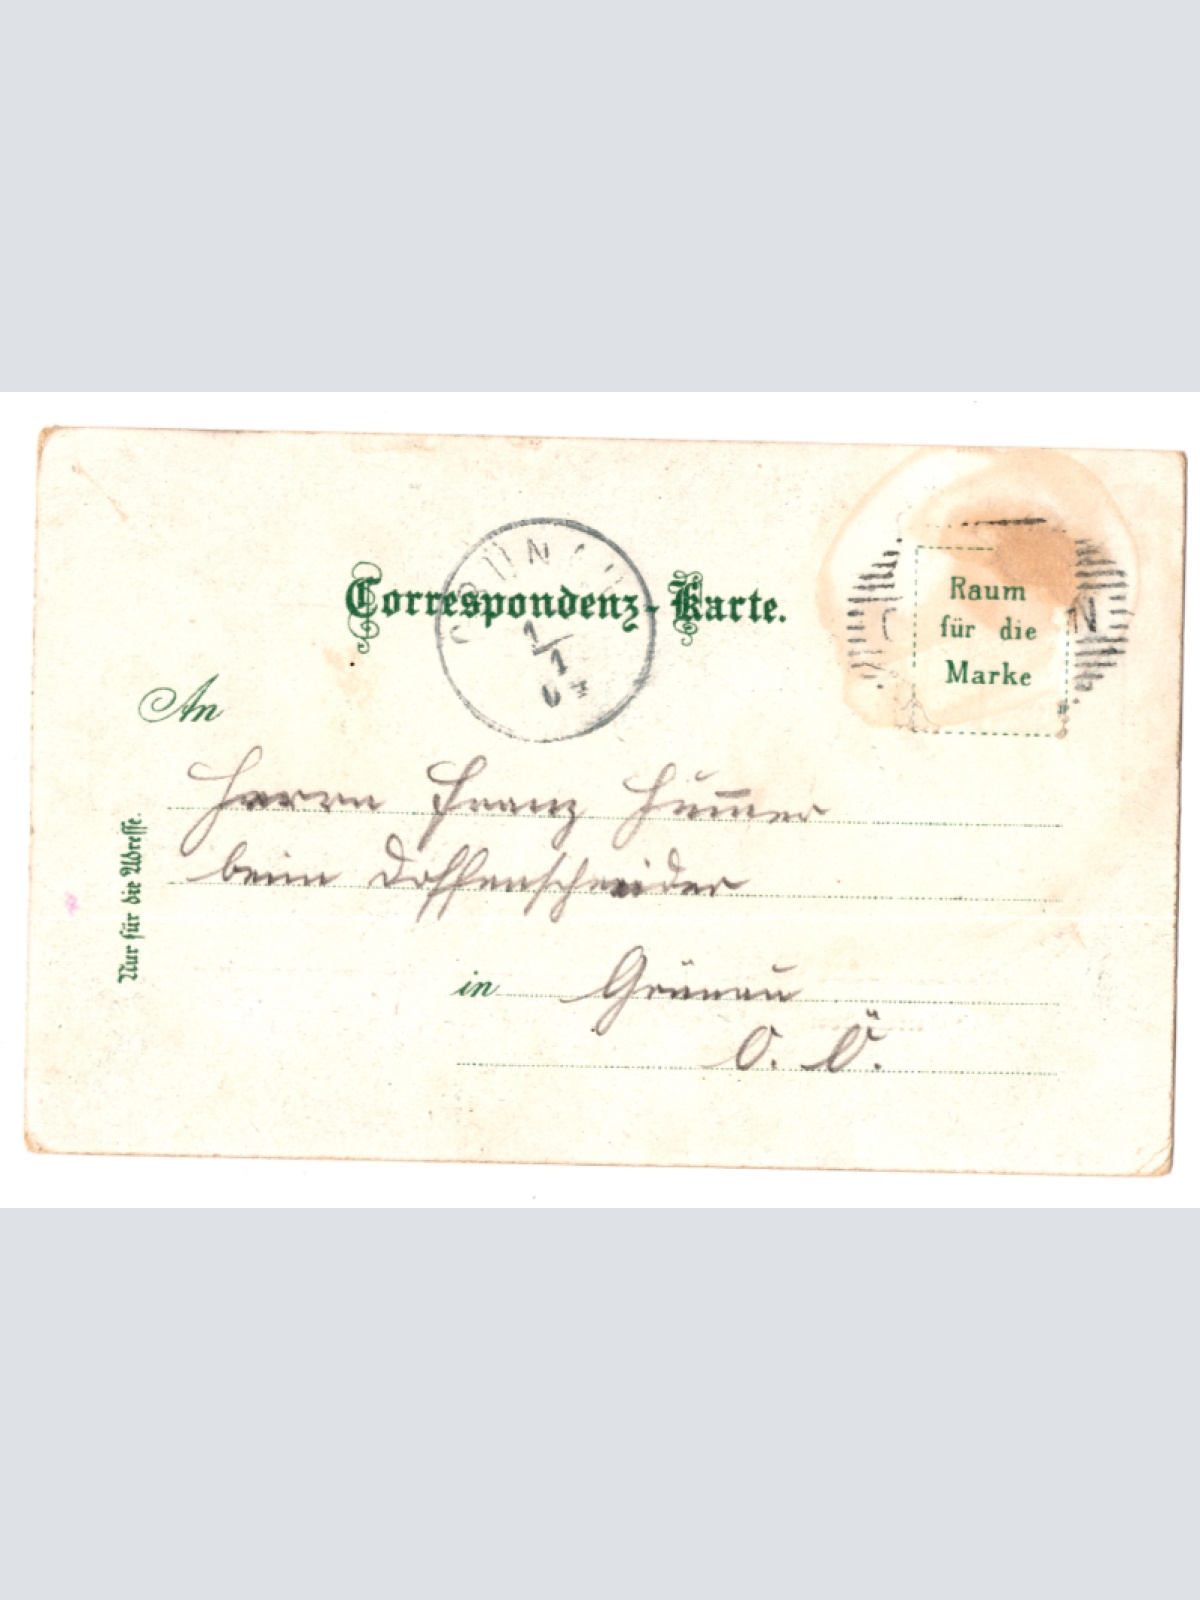 Correspondenz-Karte.
GRÜNAU
1/1
04
Raum
für die
Marke
N
An
Herrn Franz Hummer
beim
in Grünau
O. Ö.
Nur für die Adresse.